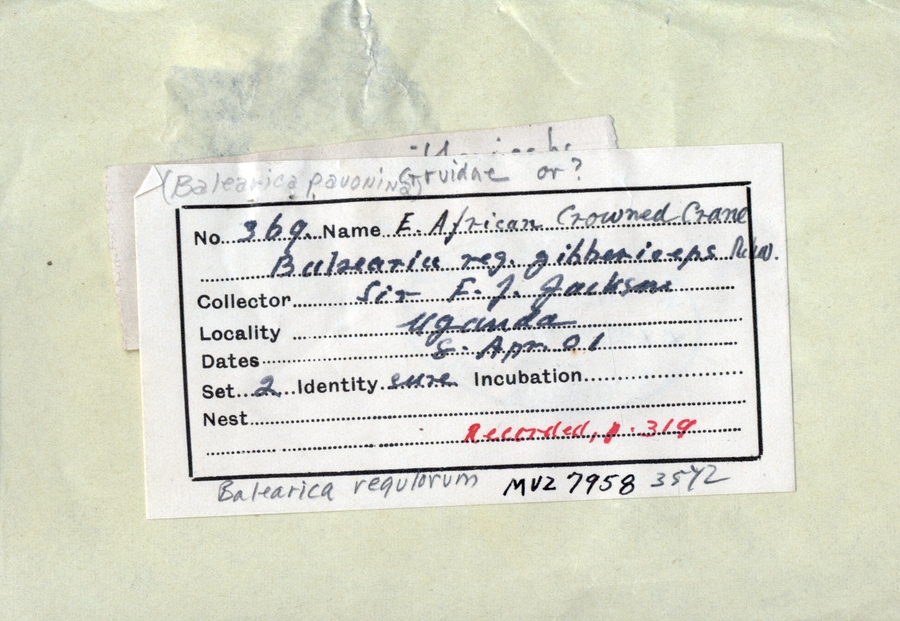 (Balearica pavonina) Gruidae or?
No. 369. Name E. African Crowned Crane
Balearica reg. gibbericeps
Collector Sir F. J. Jackson
Locality Uganda
Dates 8. Apr. 01
Set 2 Identity sure Incubation
Nest
Recorded, p. 319
Balearica regulorum MVZ 7958 35Y2